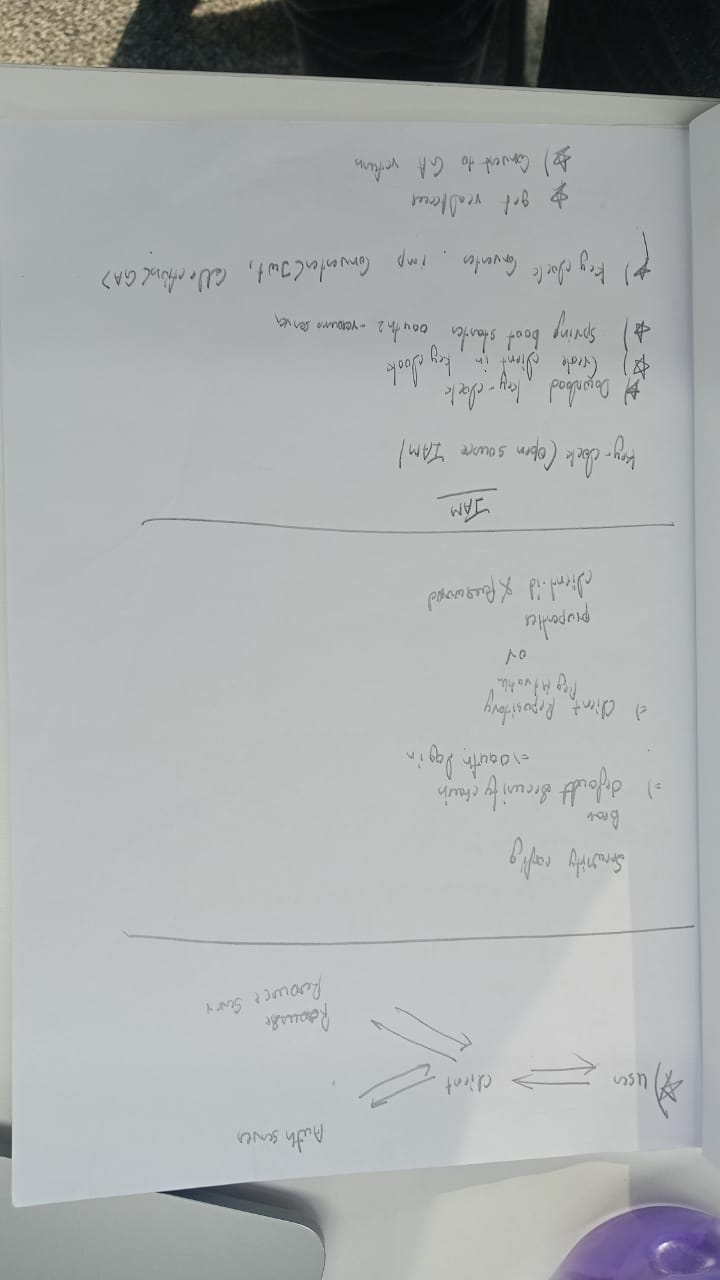 Auth server
☆) user
client
Resource Serv
Security config
Bean
=) default security chain
=> oauth login
=) client Repository
Registration
or
properties
client.id & password
IAM
Key-cloak (open source IAM)
☆) Download key-cloak
☆) Create client in key cloak
☆) Spring boot starter oauth2 - resource server
☆) Key cloak Converter. imp Converter<Jwt, Collection<GA>
☆ get realm
☆) Convert to GA return